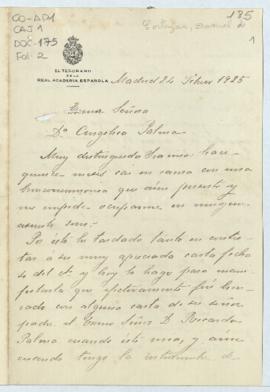 CO-ADM
CAJ 1
DOC-175
Fol. 2
185
1
EL TESORERO
DE LA
REAL ACADEMIA ESPAÑOLA
Madrid 24 Febrero 1925
Excma Señora
Dª Angélica Palma
Muy distinguida Sramia hace
quince meses cai en cama con una
bronconeumonia que aun persiste y
me impide ocuparme en ningun
asunto
Por esto he tardado tanto en contes-
tar á su muy apreciada carta fecha
4 del cte y hoy lo hago para mani-
festarle que efectivamente fui hon-
rado con alguna carta de su señor
padre el Excmo Señor D. Ricardo
Palma cuando este vivia, y aun
cuando tengo la de